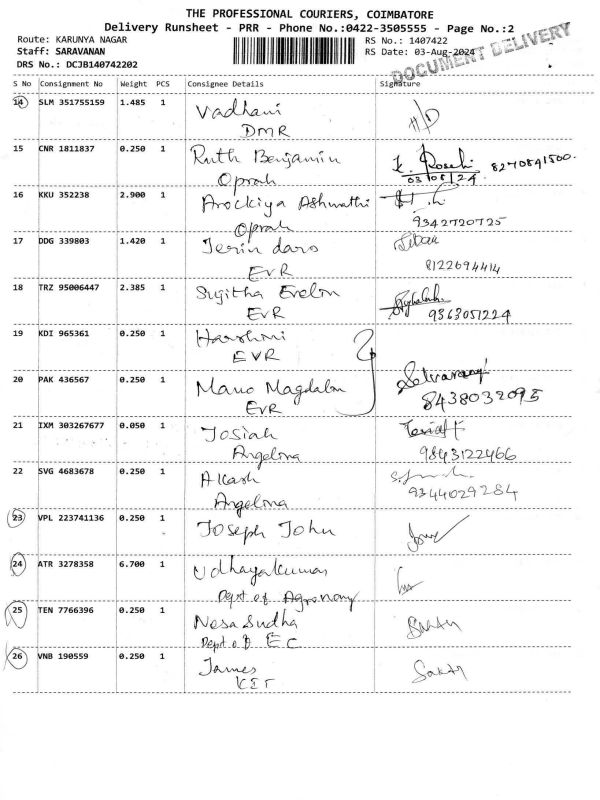 THE PROFESSIONAL COURIERS, COIMBATORE
Delivery Runsheet - PRR - Phone No.:0422-3505555 - Page No.:2
Route: KARUNYA NAGAR RS No.: 1407422
Staff: SARAVANAN RS Date: 03-Aug-2024
DRS No.: DCJB140742202
DOCUMENT DELIVERY
S No Consignment No Weight PCS Consignee Details Signature
14 SLM 351755159 1.485 1 Vadhani
DMR
15 CNR 1811837 0.250 1 Ruth Benjamin 8270541500.
Oprah 03/08/24
16 KKU 352238 2.900 1 Arockiya Ashwathi
Oprah 9342720725
17 DDG 339803 1.420 1 Jerin daro
EVR 8122694414
18 TRZ 95006447 2.385 1 Sujitha Evelin
EVR 9363051224
19 KDI 965361 0.250 1 Harshmi
EVR
20 PAK 436567 0.250 1 Mano Magdalin
EVR 8438032095
21 IXM 303267677 0.050 1 Josiah
Angelina 9843122466
22 SVG 4683678 0.250 1 Akash
Angelina 9344029284
23 VPL 223741136 0.250 1 Joseph John
24 ATR 3278358 6.700 1 Udhayakumar
Dept of Agronomy
25 TEN 7766396 0.250 1 Nesa Sudha
Dept of EC
26 VNB 190559 0.250 1 James